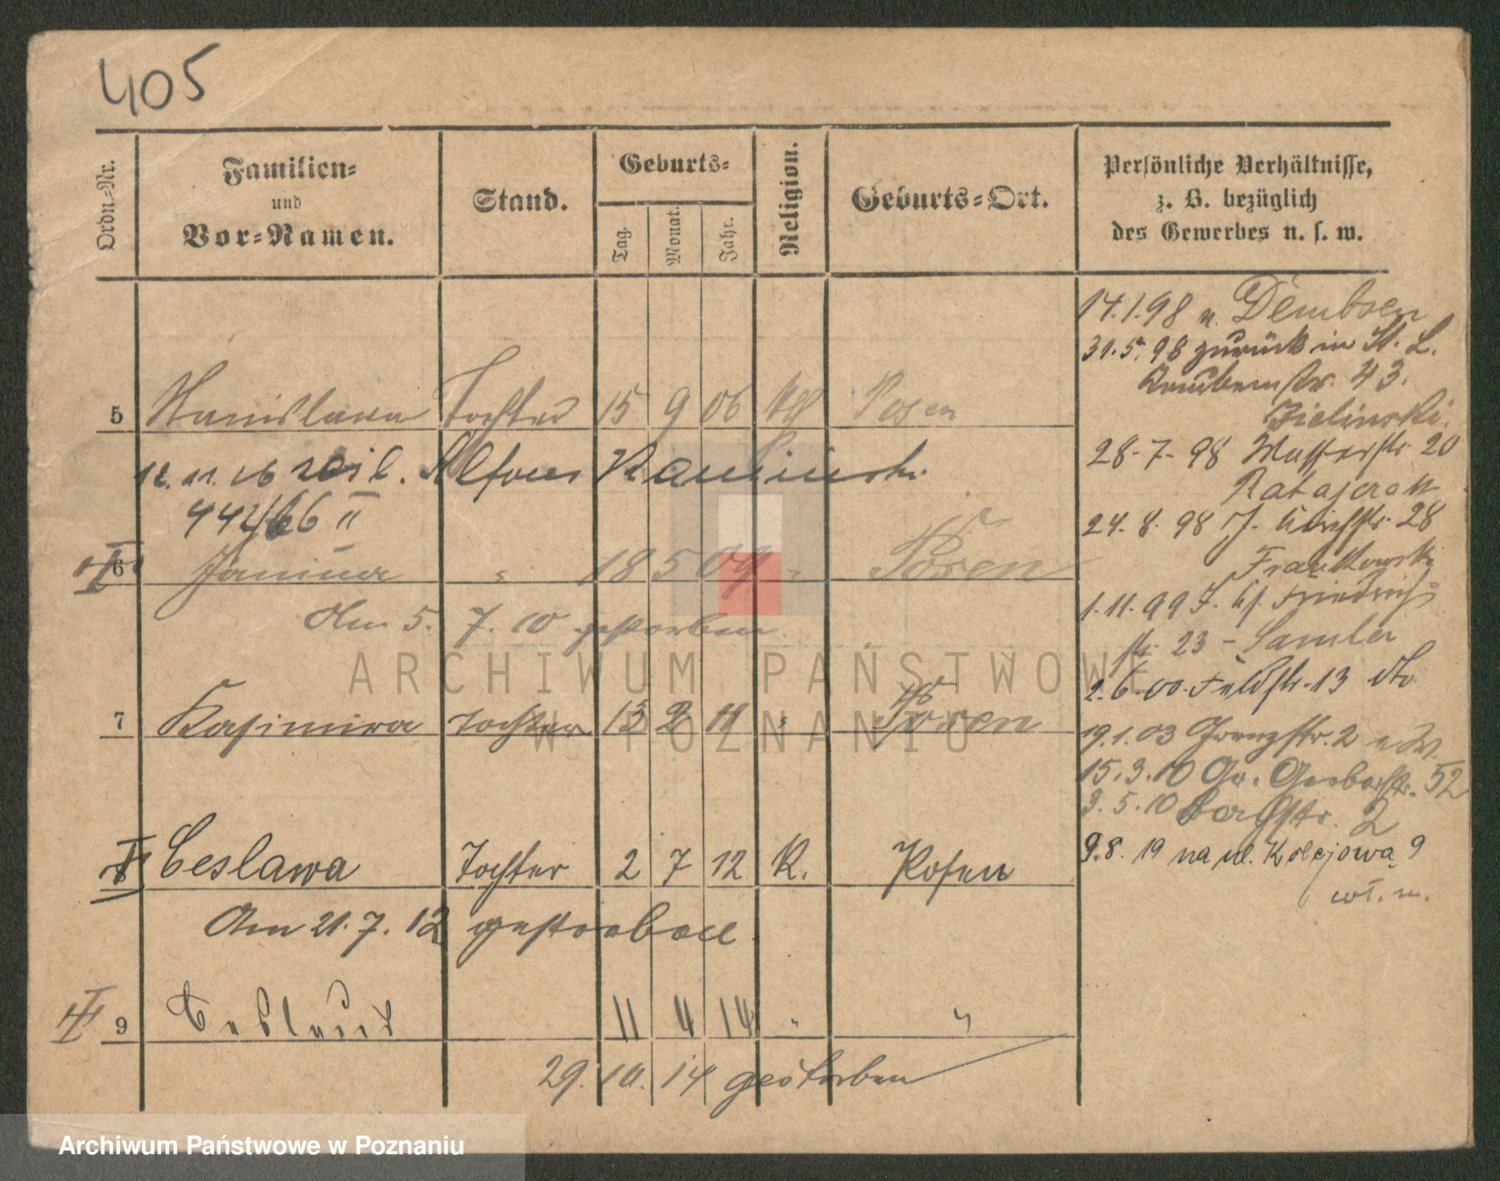 405
Ordn.-Nr.
Familien-
und
Vor-Namen.
Stand.
Geburts-
Tag.
Monat.
Jahr.
Religion.
Geburts-Ort.
Persönliche Verhältnisse,
z. B. bezüglich
des Gewerbes u. s. w.
5 Stanislawa Tochter 15 9 06 kth Posen
12. 11. 26 Alfons
442/66 II
6 Janina " 18 5 09 " Posen
Am 5. 7. 10 gestorben.
7 Kasimira Tochter 13 2 11 " Posen
8 Ceslawa Tochter 2 7 12 K. Posen
Am 21. 7. 12 gestorben.
9 Ceslaus 11 4 14 " "
29. 10. 14 gestorben
14.1.98 n. Dembsen
31.5.98 zurück in St. L.
43.
Zielinski.
28-7-98 Wasserstr 20
Ratajczak
24.8.98 28
Frankowski
1.11.99 Friedrich
str. 23 -
2.6.00 Feldstr. 13 dto
19.1.03 Grenzstr. 2
15.3.10 Gr. Gerberstr. 52
3.5.10 2
9.8.19 na ul. Kolejową 9
wł. m.
ARCHIWUM PAŃSTWOWE
W POZNANIU
Archiwum Państwowe w Poznaniu